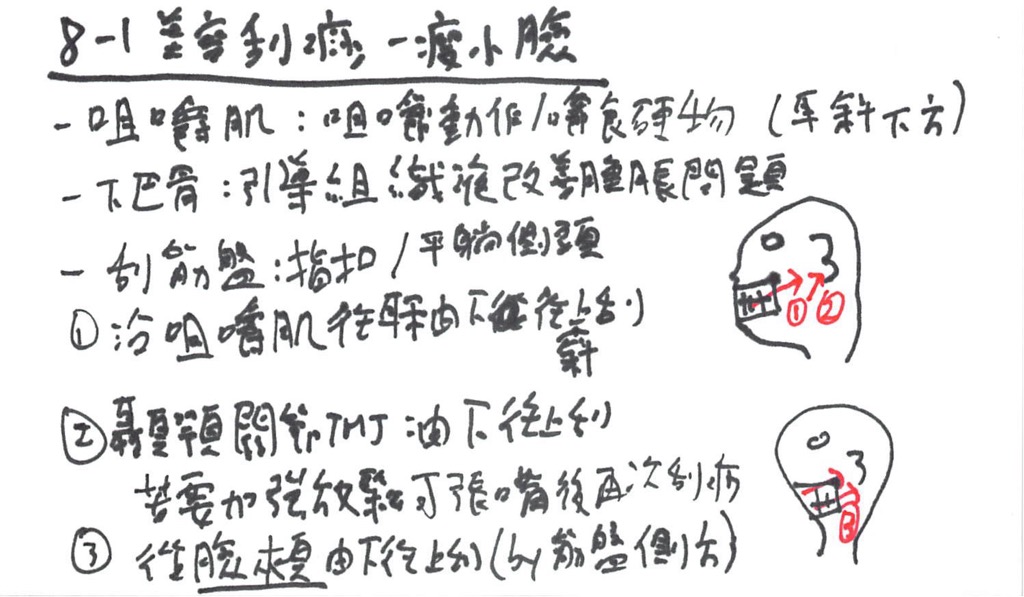 8-1 美容刮痧-瘦小臉
- 咀嚼肌:咀嚼動作/嚼食硬物 (耳斜下方)
- 下巴骨:引導組織液改善腫脹問題
- 刮筋盤:指扣/平躺側頭
① 沿咀嚼肌往耳朵由下往上刮
斜
② 顳顎關節TMJ:由下往上刮
若要加強放鬆可張嘴後再次刮痧
③ 從臉頰由下往上刮(by 筋盤側方)
3
①
②
3
③